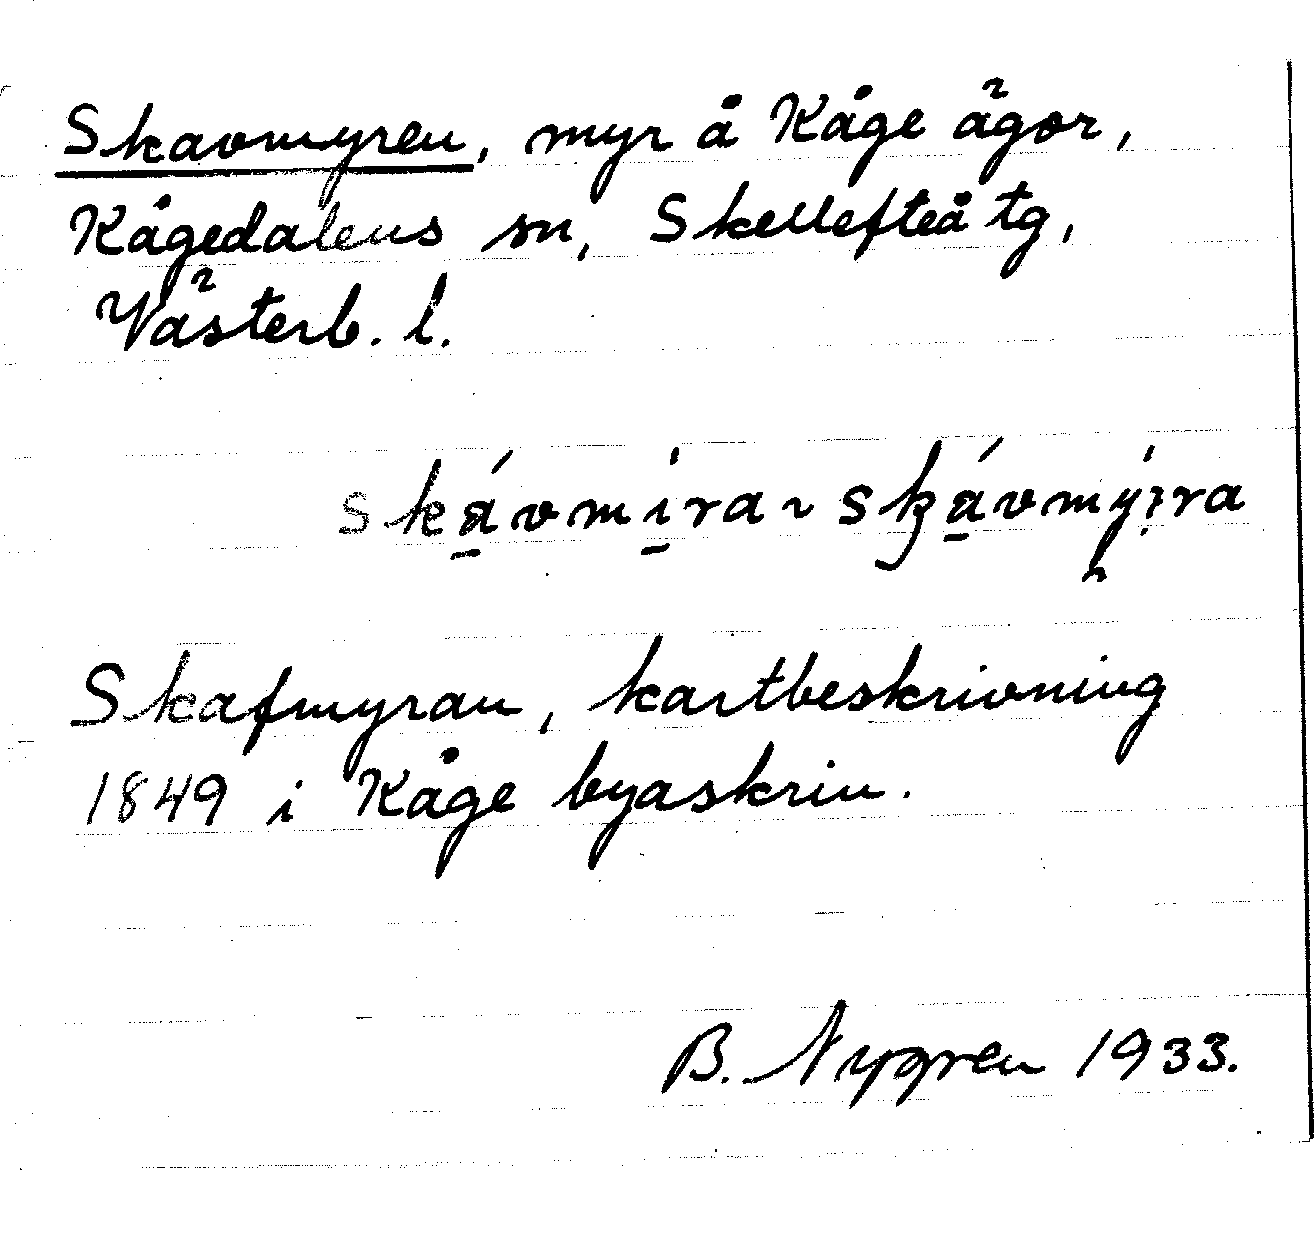 Skavmyren, myr å Kåge ägor,
Kågedalens sn, Skellefteå tg,
Västerb. l.
ská̱vmi̱ra ~ ská̱vmýra
Skafmyran, kartbeskrivning
1849 i Kåge byaskrin.
B. Nygren 1933.